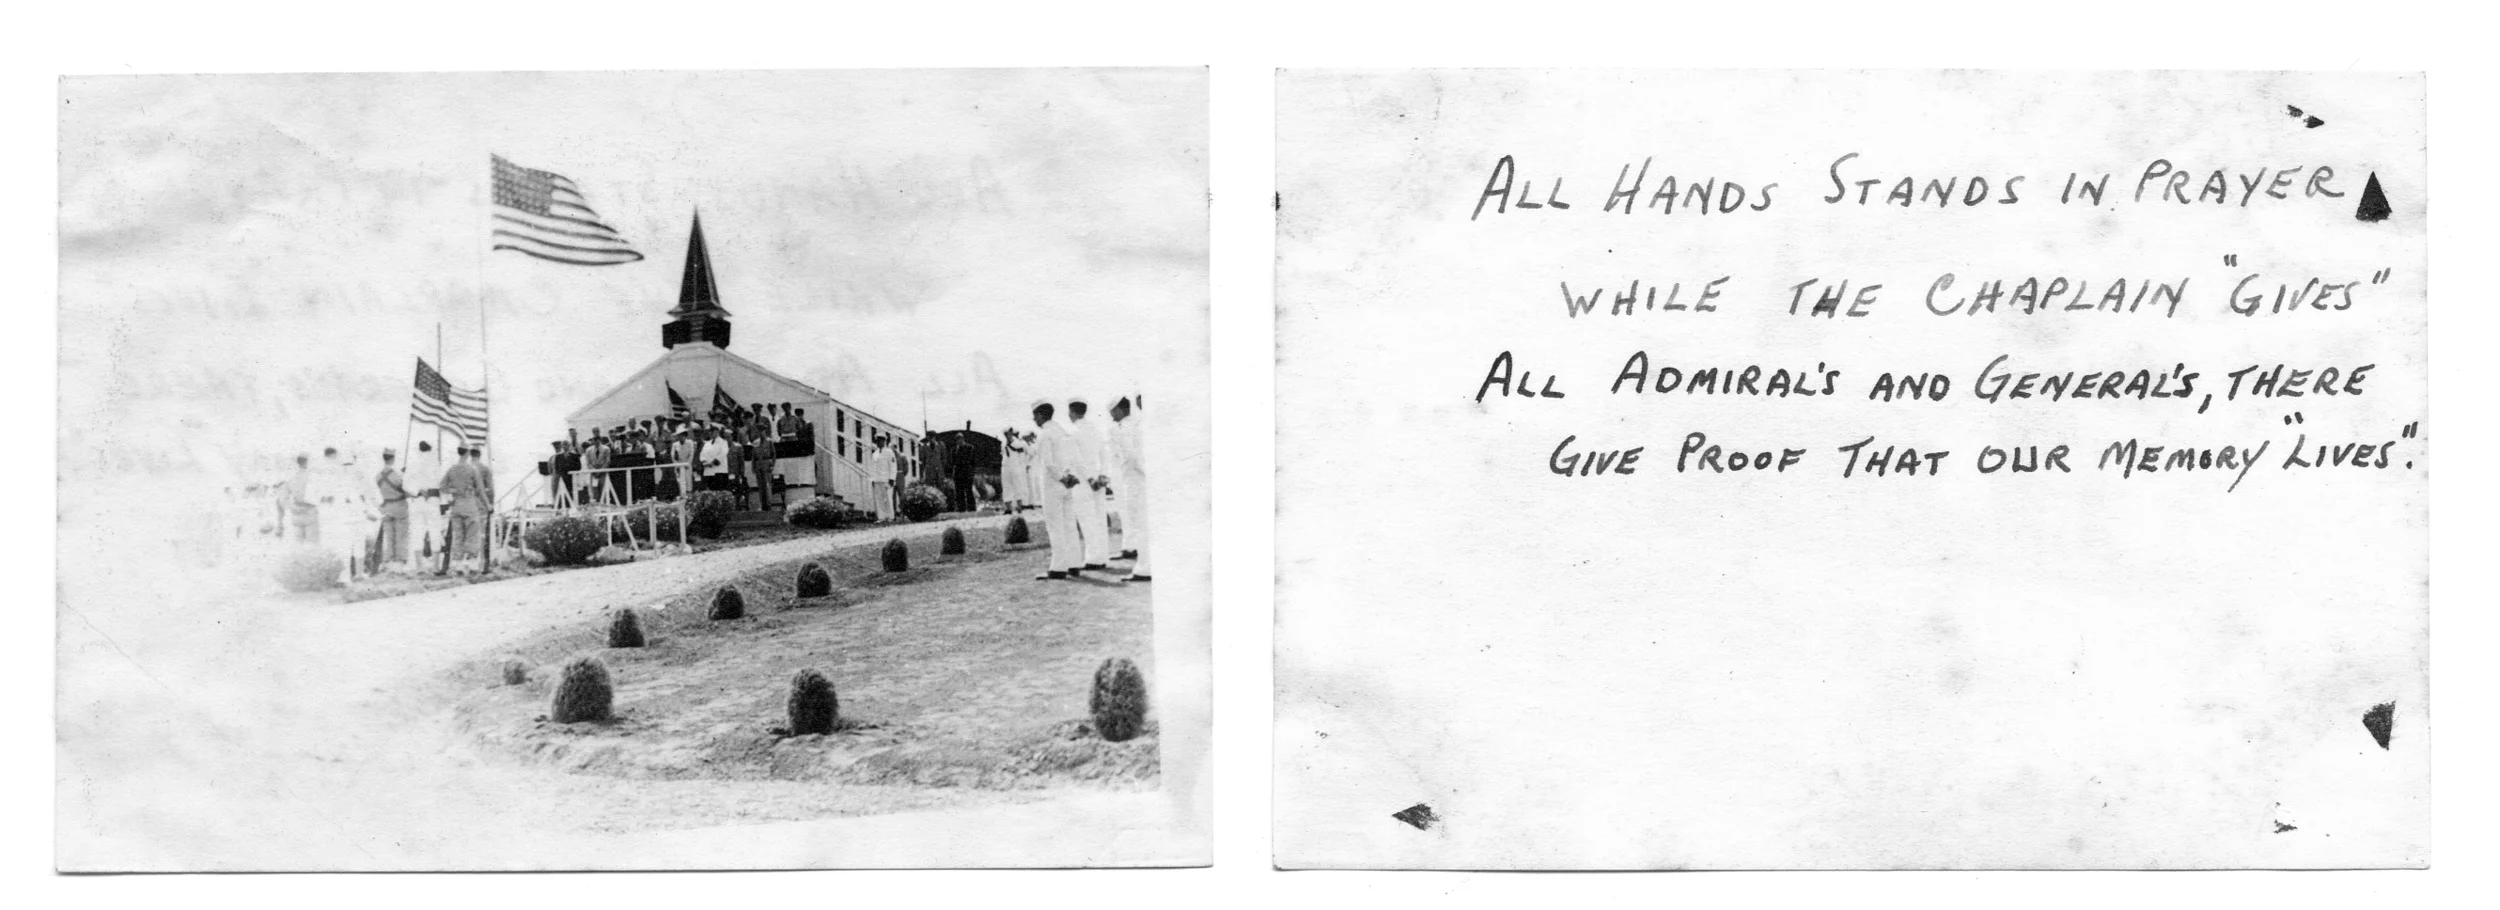 ALL HANDS STANDS IN PRAYER
WHILE THE CHAPLAIN "GIVES"
ALL ADMIRAL'S AND GENERAL'S, THERE
GIVE PROOF THAT OUR MEMORY "LIVES".